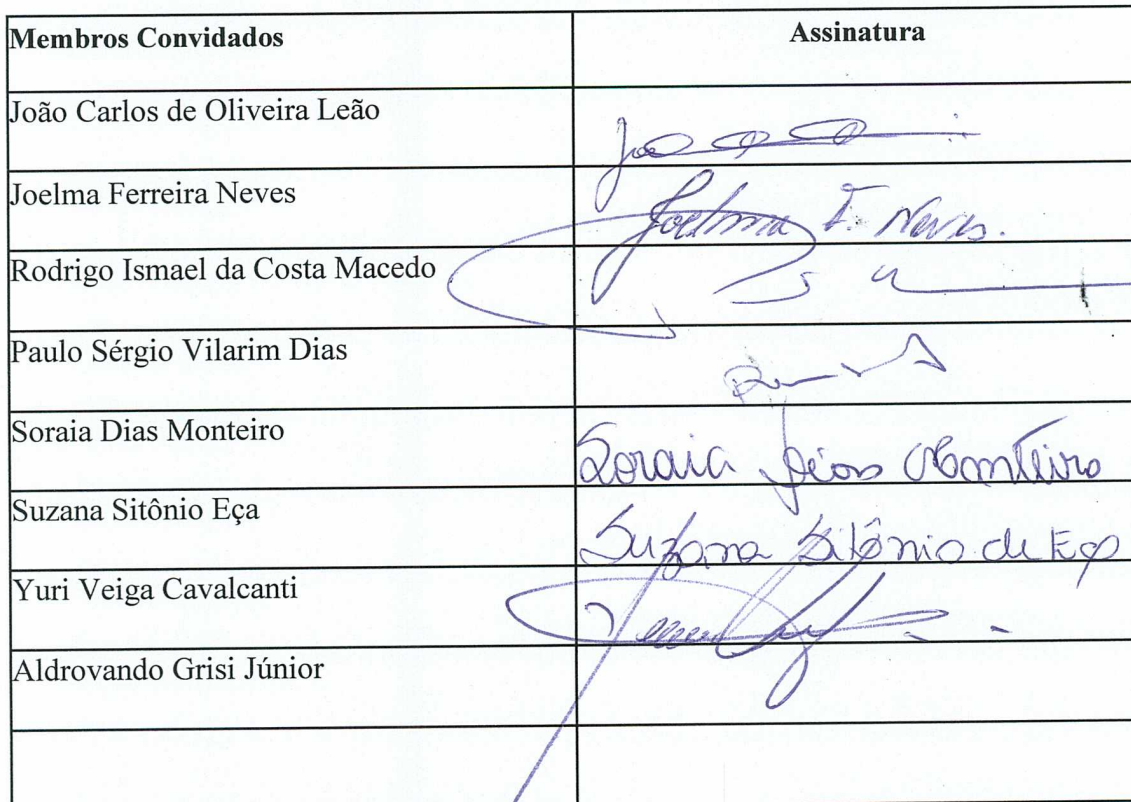 Membros Convidados Assinatura
João Carlos de Oliveira Leão
Joelma Ferreira Neves Joelma F. Neves.
Rodrigo Ismael da Costa Macedo
Paulo Sérgio Vilarim Dias
Soraia Dias Monteiro Soraia Dias Monteiro
Suzana Sitônio Eça Suzana Sitônio de Eça
Yuri Veiga Cavalcanti
Aldrovando Grisi Júnior